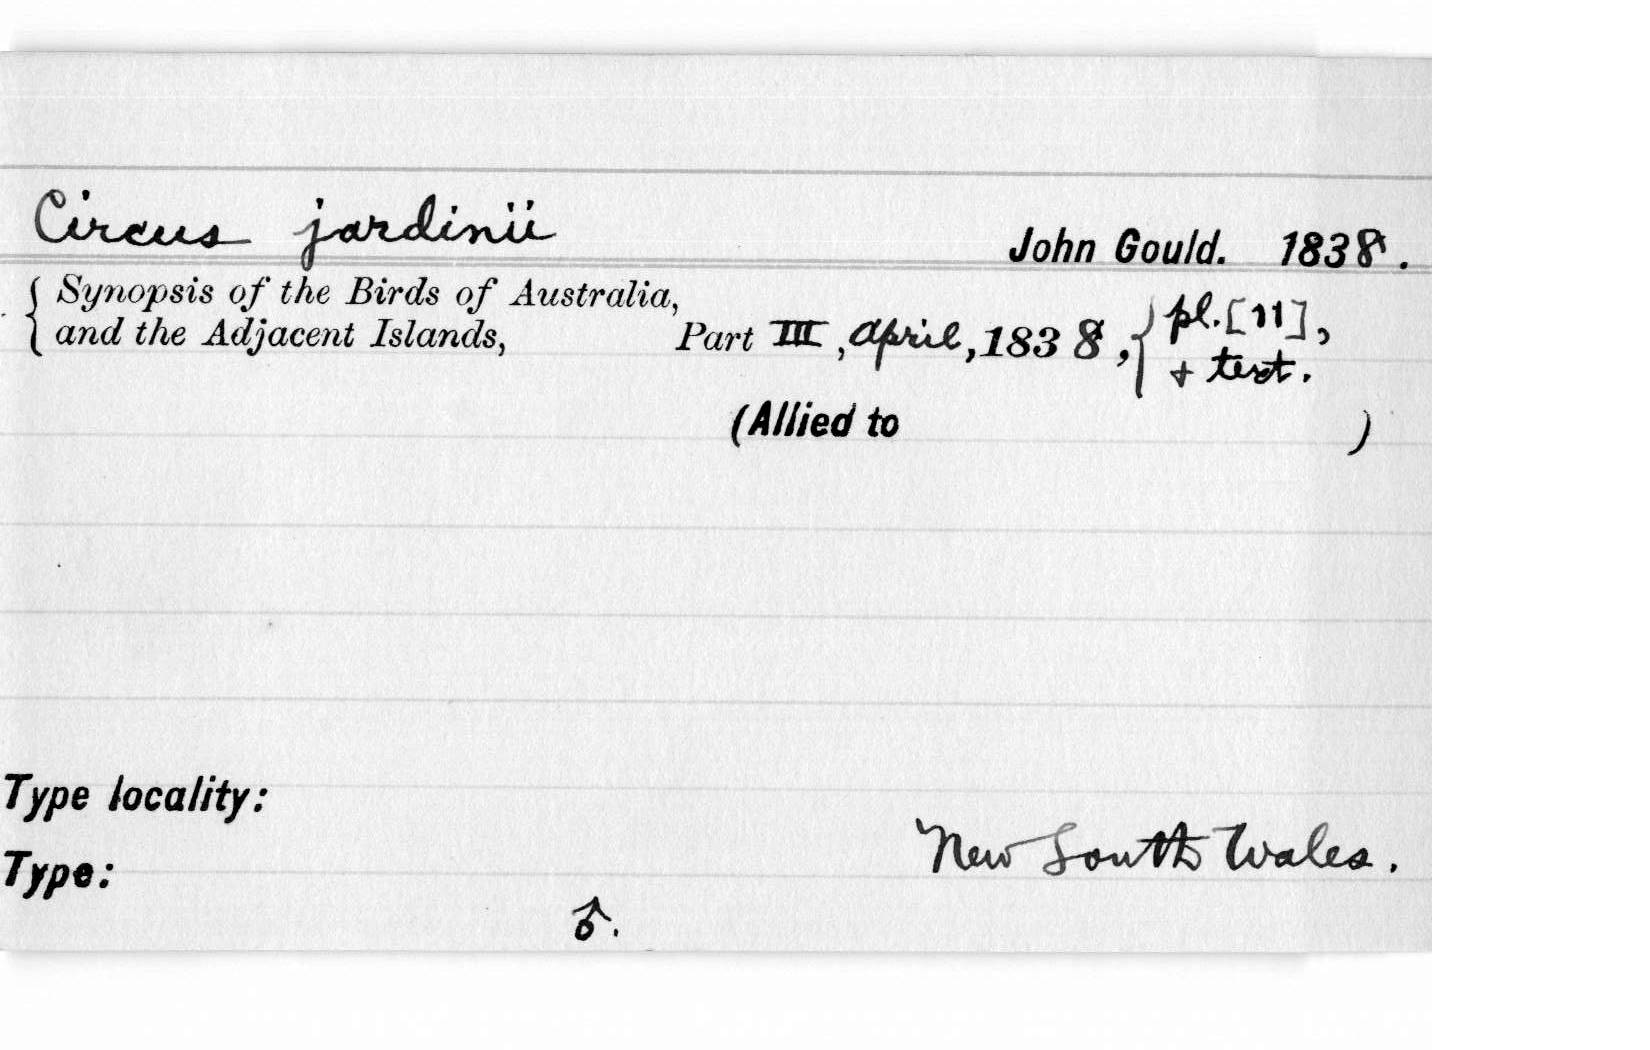 Circus jardinii
John Gould. 1838.
Synopsis of the Birds of Australia,
and the Adjacent Islands, Part III, April, 1838, pl. [11],
+ text.
(Allied to )
Type locality:
New South Wales.
Type:
♂.